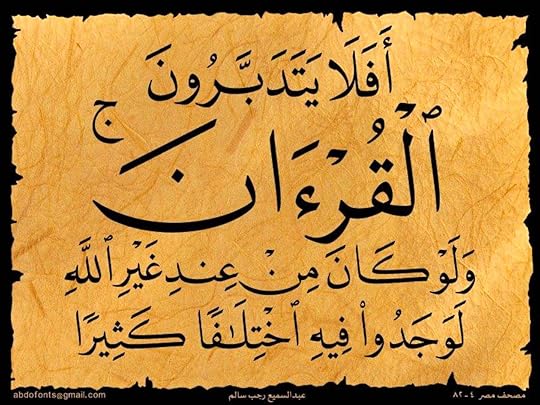 أَفَلَا يَتَدَبَّرُونَ
ٱلْقُرْءَانَ ۚ
وَلَوْ كَانَ مِنْ عِندِ غَيْرِ ٱللَّهِ
لَوَجَدُوا۟ فِيهِ ٱخْتِلَٰفًا كَثِيرًا
مصحف مصر ٤-٨٢ عبدالسميع رجب سالم abdofonts@gmail.com